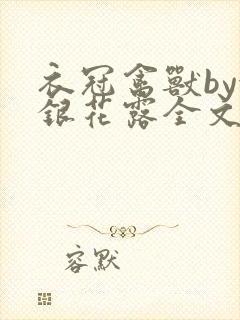 衣冠禽獸by
銀花露全文
容默